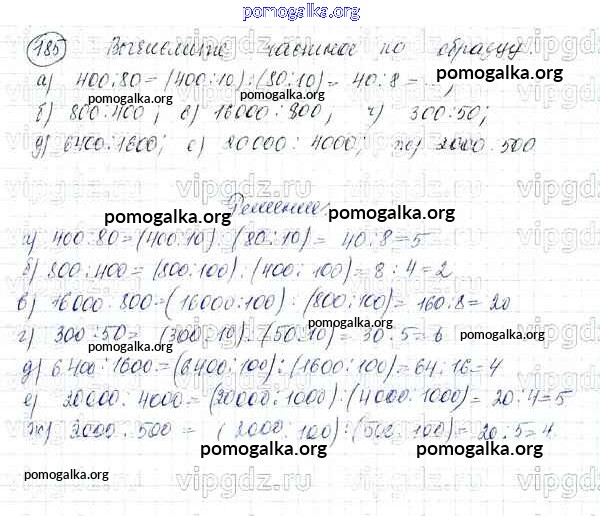 pomogalka.org
185 Вычислите частное по образцу:
а) 400:80=(400:10):(80:10)= 40:8=...,
pomogalka.org
pomogalka.org
б) 800:400; в) 16000:800, г) 300:50;
pomogalka.org
pomogalka.org
д) 6400:1600; е) 20000:4000; ж) 2000:500
vipgdz.ru vipgdz.ru vipgdz.ru
Решение.
pomogalka.org pomogalka.org
а) 400:80=(400:10):(80:10)= 40:8=5
pomogalka.org
б) 800:400=(800:100):(400:100)=8:4=2
pomogalka.org
в) 16000:800=(16000:100):(800:100)=160:8=20
г) 300:50=(300:10):(50:10)=30:5=6
pomogalka.org pomogalka.org
д) 6400:1600=(6400:100):(1600:100)=64:16=4
е) 20000:4000=(20000:1000):(4000:1000)=20:4=5
pomogalka.org
ж) 2000:500 = (2000:100):(500:100)=20:5=4
pomogalka.org pomogalka.org
pomogalka.org
vipgdz.ru vipgdz.ru vipgdz.ru